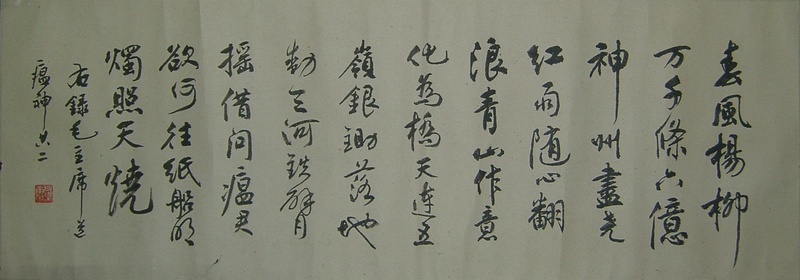 春風楊柳
万千條六億
神州盡堯
紅雨随心翻
浪青山作意
化為橋天連五
嶺銀鋤落地
動三河鉄臂
搖借问瘟君
欲何往纸船明
燭照天燒
右録毛主席送
瘟神其二